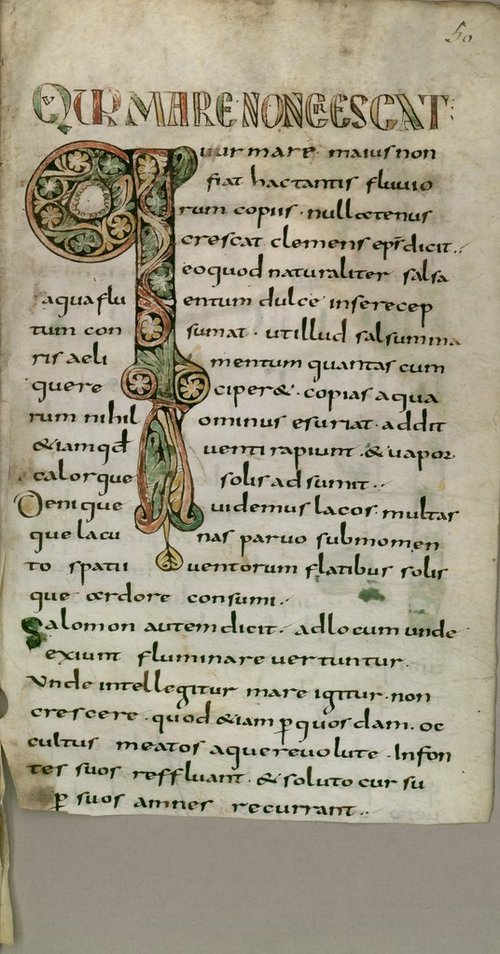 50
QUR MARE NON CRESCAT:
uur mare· maius non
fiat hac tantis fluuio
rum copiis· nullatenus
crescat clemens epsdicit·:
eo quod naturaliter salsa
aqua fluentum dulce inserecep
tum consumat· ut illud salsumma
ris aelimentum quantas cum
quereciper&· copias aqua
rum nihilominus esuriat· addit
&iam qduenti rapiunt· & uapor
calorquesolis adsumit·:
Deniqueuidemus lacos· multas
que lacunas paruo submomen
to spatiiuentorum flatibus solis
que ardore consumi·:
Salomon autem dicit· ad locum unde
exiunt fluminare uertuntur·
Unde intellegitur mare igitur· non
crescere· quod &iam p quosdam· oc
cultus meatos aquereuolute· Infon
tes suos reffluant· & soluto cur su
p suos amnes recurrant·: